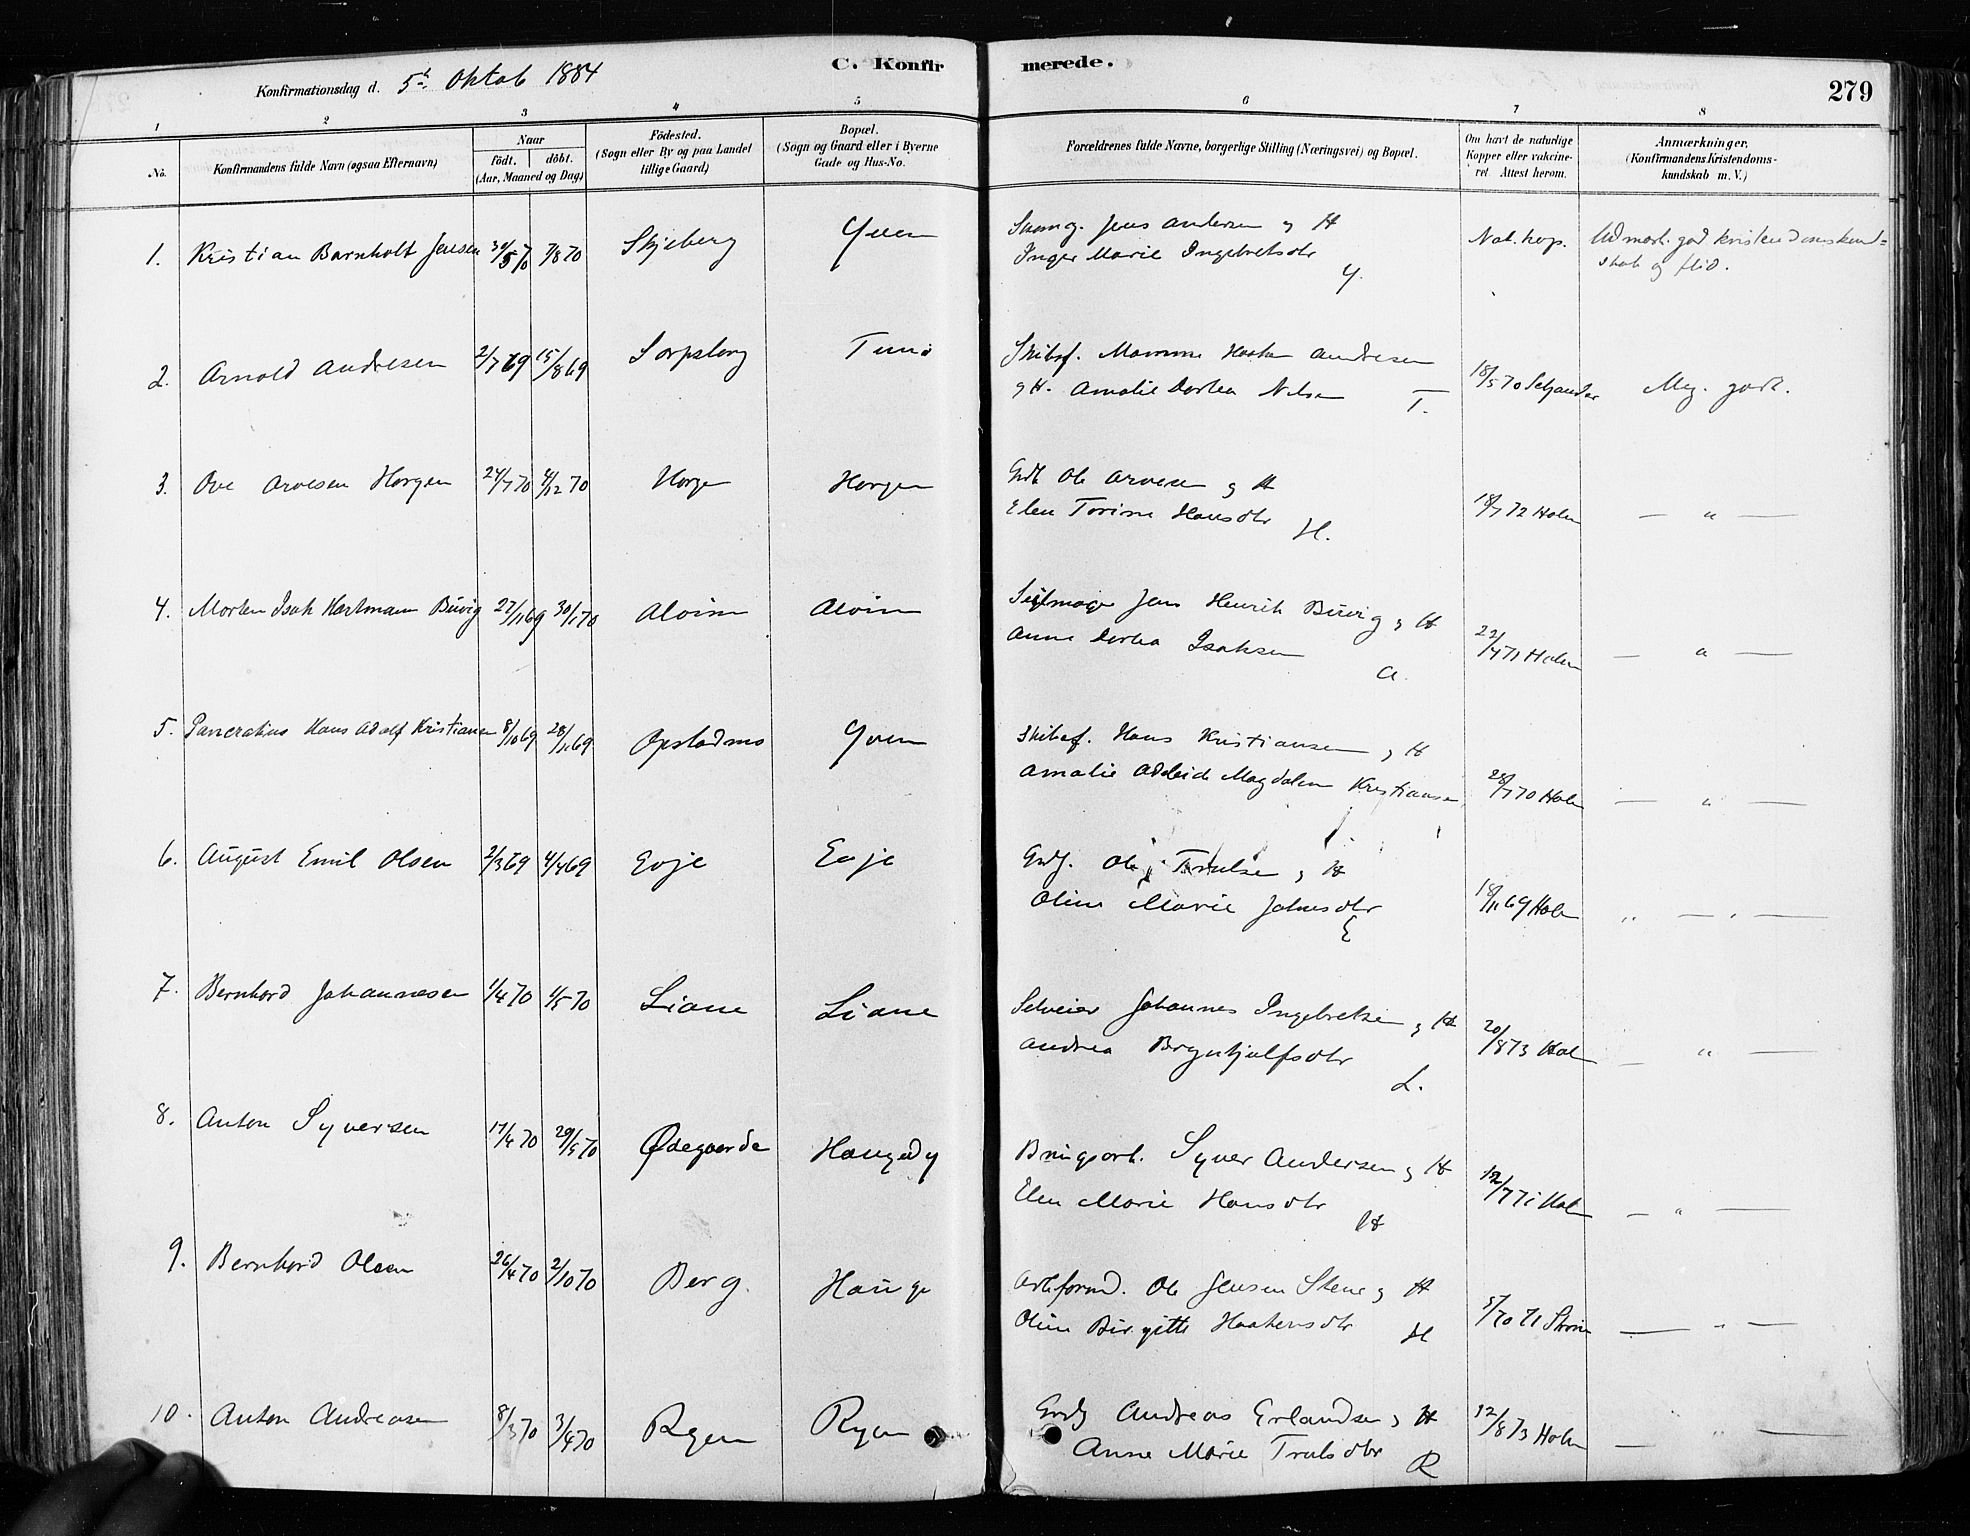 C. Konfirmerede.
279
Konfirmationsdag d. 5t Oktob 1884
1 2 3 4 5 6 7 8
No.
Konfirmandens fulde Navn (ogsaa Efternavn)
Naar
födt. döbt.
(Aar, Maaned og Dag)
Födested.
(Sogn eller By og paa Landet
tillige Gaard)
Bopæl.
(Sogn og Gaard eller i Byerne
Gade og Hus-No.
Forældrenes fulde Navne, borgerlige Stilling (Næringsvei) og Bopæl.
Om havt de naturlige
Kopper eller vakcine-
ret Attest herom.
Anmærkninger,
(Konfirmandens Kristendoms-
kundskab m. V.)
1. Kristian Barnholt Jensen 30/5 70 7/8 70 Skjeberg Yven Jens Andersen og H Nat. kop. Udmærk. god kristendomskund=
Inger Marie Ingebretsdtr Y. skab og flid.
2. Arnold Andresen 2/7 69 15/8 69 Sarpsborg Tunø Skibsf. Haaken Andresen
og H. Amalie Dortea Nilsen T. 18/5 70 Meg. godt.
3. Ove Arvesen Horgen 24/7 70 4/12 70 Horgen Horgen Grdb Ole Arvesen og H
Elen Torine Hansdtr H. 18/7 72 Holm — " —
4. Morten Isak Hartmann Buvig 27/11 69 30/1 70 Alvim Alvim Seilmager Jens Henrik Buvig og H
Anne Dortea Isaksen A. 22/4 71 Holm — " —
5. Pancratius Hans Adolf Kristiansen 8/10 69 28/11 69 Opstadmo Yven Skibsf. Hans Kristiansen og H
Amalie Adeleide Magdalene Kristiansen 28/7 70 Holm — " —
6. August Emil Olsen 2/3 69 4/4 69 Evje Evje Grdf. Ole Trulsen og H
Oline Marie Johnsdtr E 18/11 69 Holm " — " —
7. Bernhard Johannesen 1/4 70 1/5 70 Liane Liane Selveier Johannes Ingebretsen og H
Andrea Brynhjulfsdtr L. 20/8 73 Holm — " —
8. Anton Syversen 17/4 70 29/5 70 Ødegaarde Haugedy Brugsarb. Syver Andersen og H
Elen Marie Hansdtr H 12/7 71 Holm — " —
9. Bernhard Olsen 26/4 70 2/10 70 Berg. Hauge Arbformd. Ole Jensen Skene og H
Oline Birgitte Haakensdtr H 5/10 71 — " —
10. Anton Andreasen 8/3 70 3/4 70 Ryen Ryen Grdb Andreas Erlandsen og H
Anne Marie Trulsdtr R 12/8 73 Holm — " —